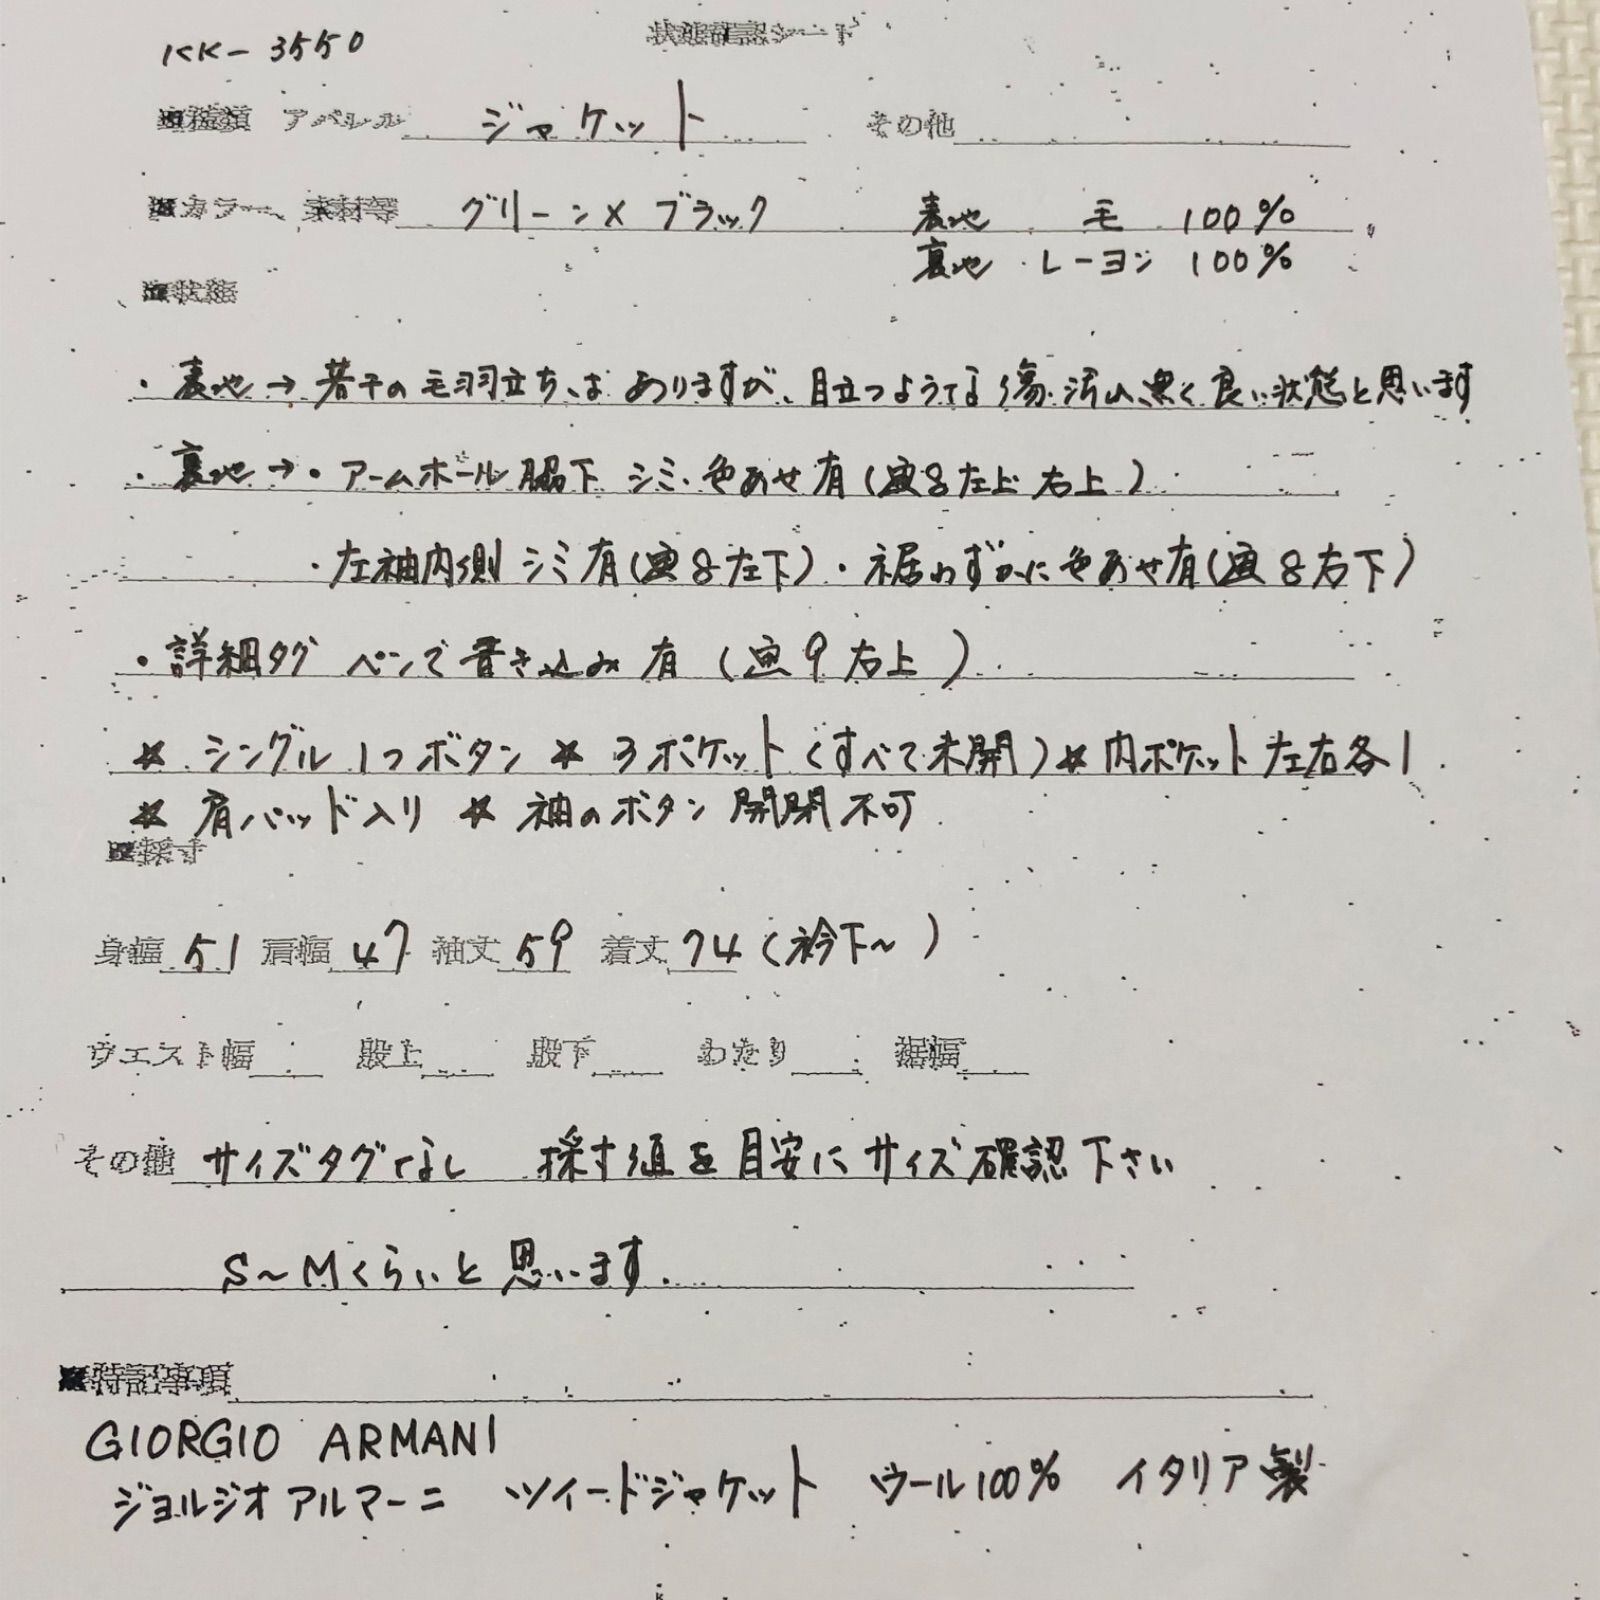 状態確認シート
KK-3550
■種類 アパレル ジャケット その他
■カラー、素材等 グリーン×ブラック 表地 毛 100%
裏地 レーヨン 100%
■状態
・表地→若干の毛羽立ちはありますが、目立つような傷汚れ無く良い状態と思います
・裏地→・アームホール脇下 シミ・色あせ有(画8左上 右上)
・左袖内側 シミ有(画8左下)・裾わずかに色あせ有(画8右下)
・詳細タグ ペンで書き込み有 (画9右上)
★ シングル1つボタン ★ 3ポケット(すべて未開)★内ポケット左右各1
★ 肩パッド入り ★ 袖のボタン開閉不可
■採寸
身幅 51 肩幅 47 袖丈 59 着丈 74(衿下~)
ウエスト幅 股上 股下 わたり 裾幅
その他 サイズタグなし 採寸値を目安にサイズ確認下さい
S~Mくらいと思います.
■特記事項
GIORGIO ARMANI
ジョルジオアルマーニ ツイードジャケット ウール100% イタリア製